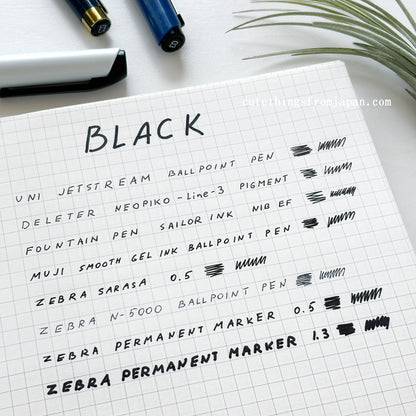 cutethingsfromjapan.com
BLACK
UNI JETSTREAM BALLPOINT PEN
DELETER NEOPIKO-Line-3 PIGMENT
FOUNTAIN PEN SAILOR INK NIB EF
MUJI SMOOTH GEL INK BALLPOINT PEN
ZEBRA SARASA 0.5
ZEBRA N-5000 BALLPOINT PEN
ZEBRA PERMANENT MARKER 0.5
ZEBRA PERMANENT MARKER 1.3